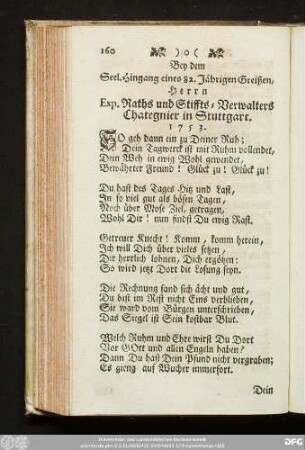 160 )o(
Bey dem
Seel. Hingang eines 82. Jährigen Greißen,
Herrn
Exp. Raths und Stiffts-Verwalters
Chategnier in Stuttgart.
1753.
SO geh dann ein zu Deiner Ruh;
Dein Tagwerck ist mit Ruhm vollendet,
Dein Weh in ewig Wohl gewendet,
Bewährter Freund! Glück zu! Glück zu!
Du hast des Tages Hitz und Last,
In so viel gut als bösen Tagen,
Noch über Mose Ziel, getragen,
Wohl Dir! nun findst Du ewig Rast.
Getreuer Knecht! Komm, komm herein,
Ich will Dich über vieles setzen,
Dir herrlich lohnen, Dich ergötzen:
So wird jetzt Dort die Losung seyn.
Die Rechnung fand sich ächt und gut,
Du bist im Rest nicht Eins verblieben,
Sie ward vom Bürgen unterschrieben,
Das Siegel ist Sein kostbar Blut.
Welch Ruhm und Ehre wirst Du Dort
Vor GOtt und allen Engeln haben?
Dann Du hast Dein Pfund nicht vergraben;
Es gieng auf Wucher immerfort.
Dein
DFG